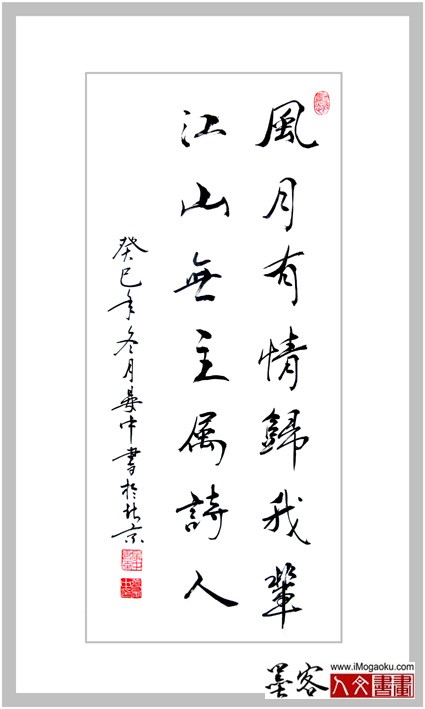 風月有情歸我輩
江山無主属詩人
癸巳年冬月晏中書於北京
墨客
www.iMogaoku.com
人文書畫